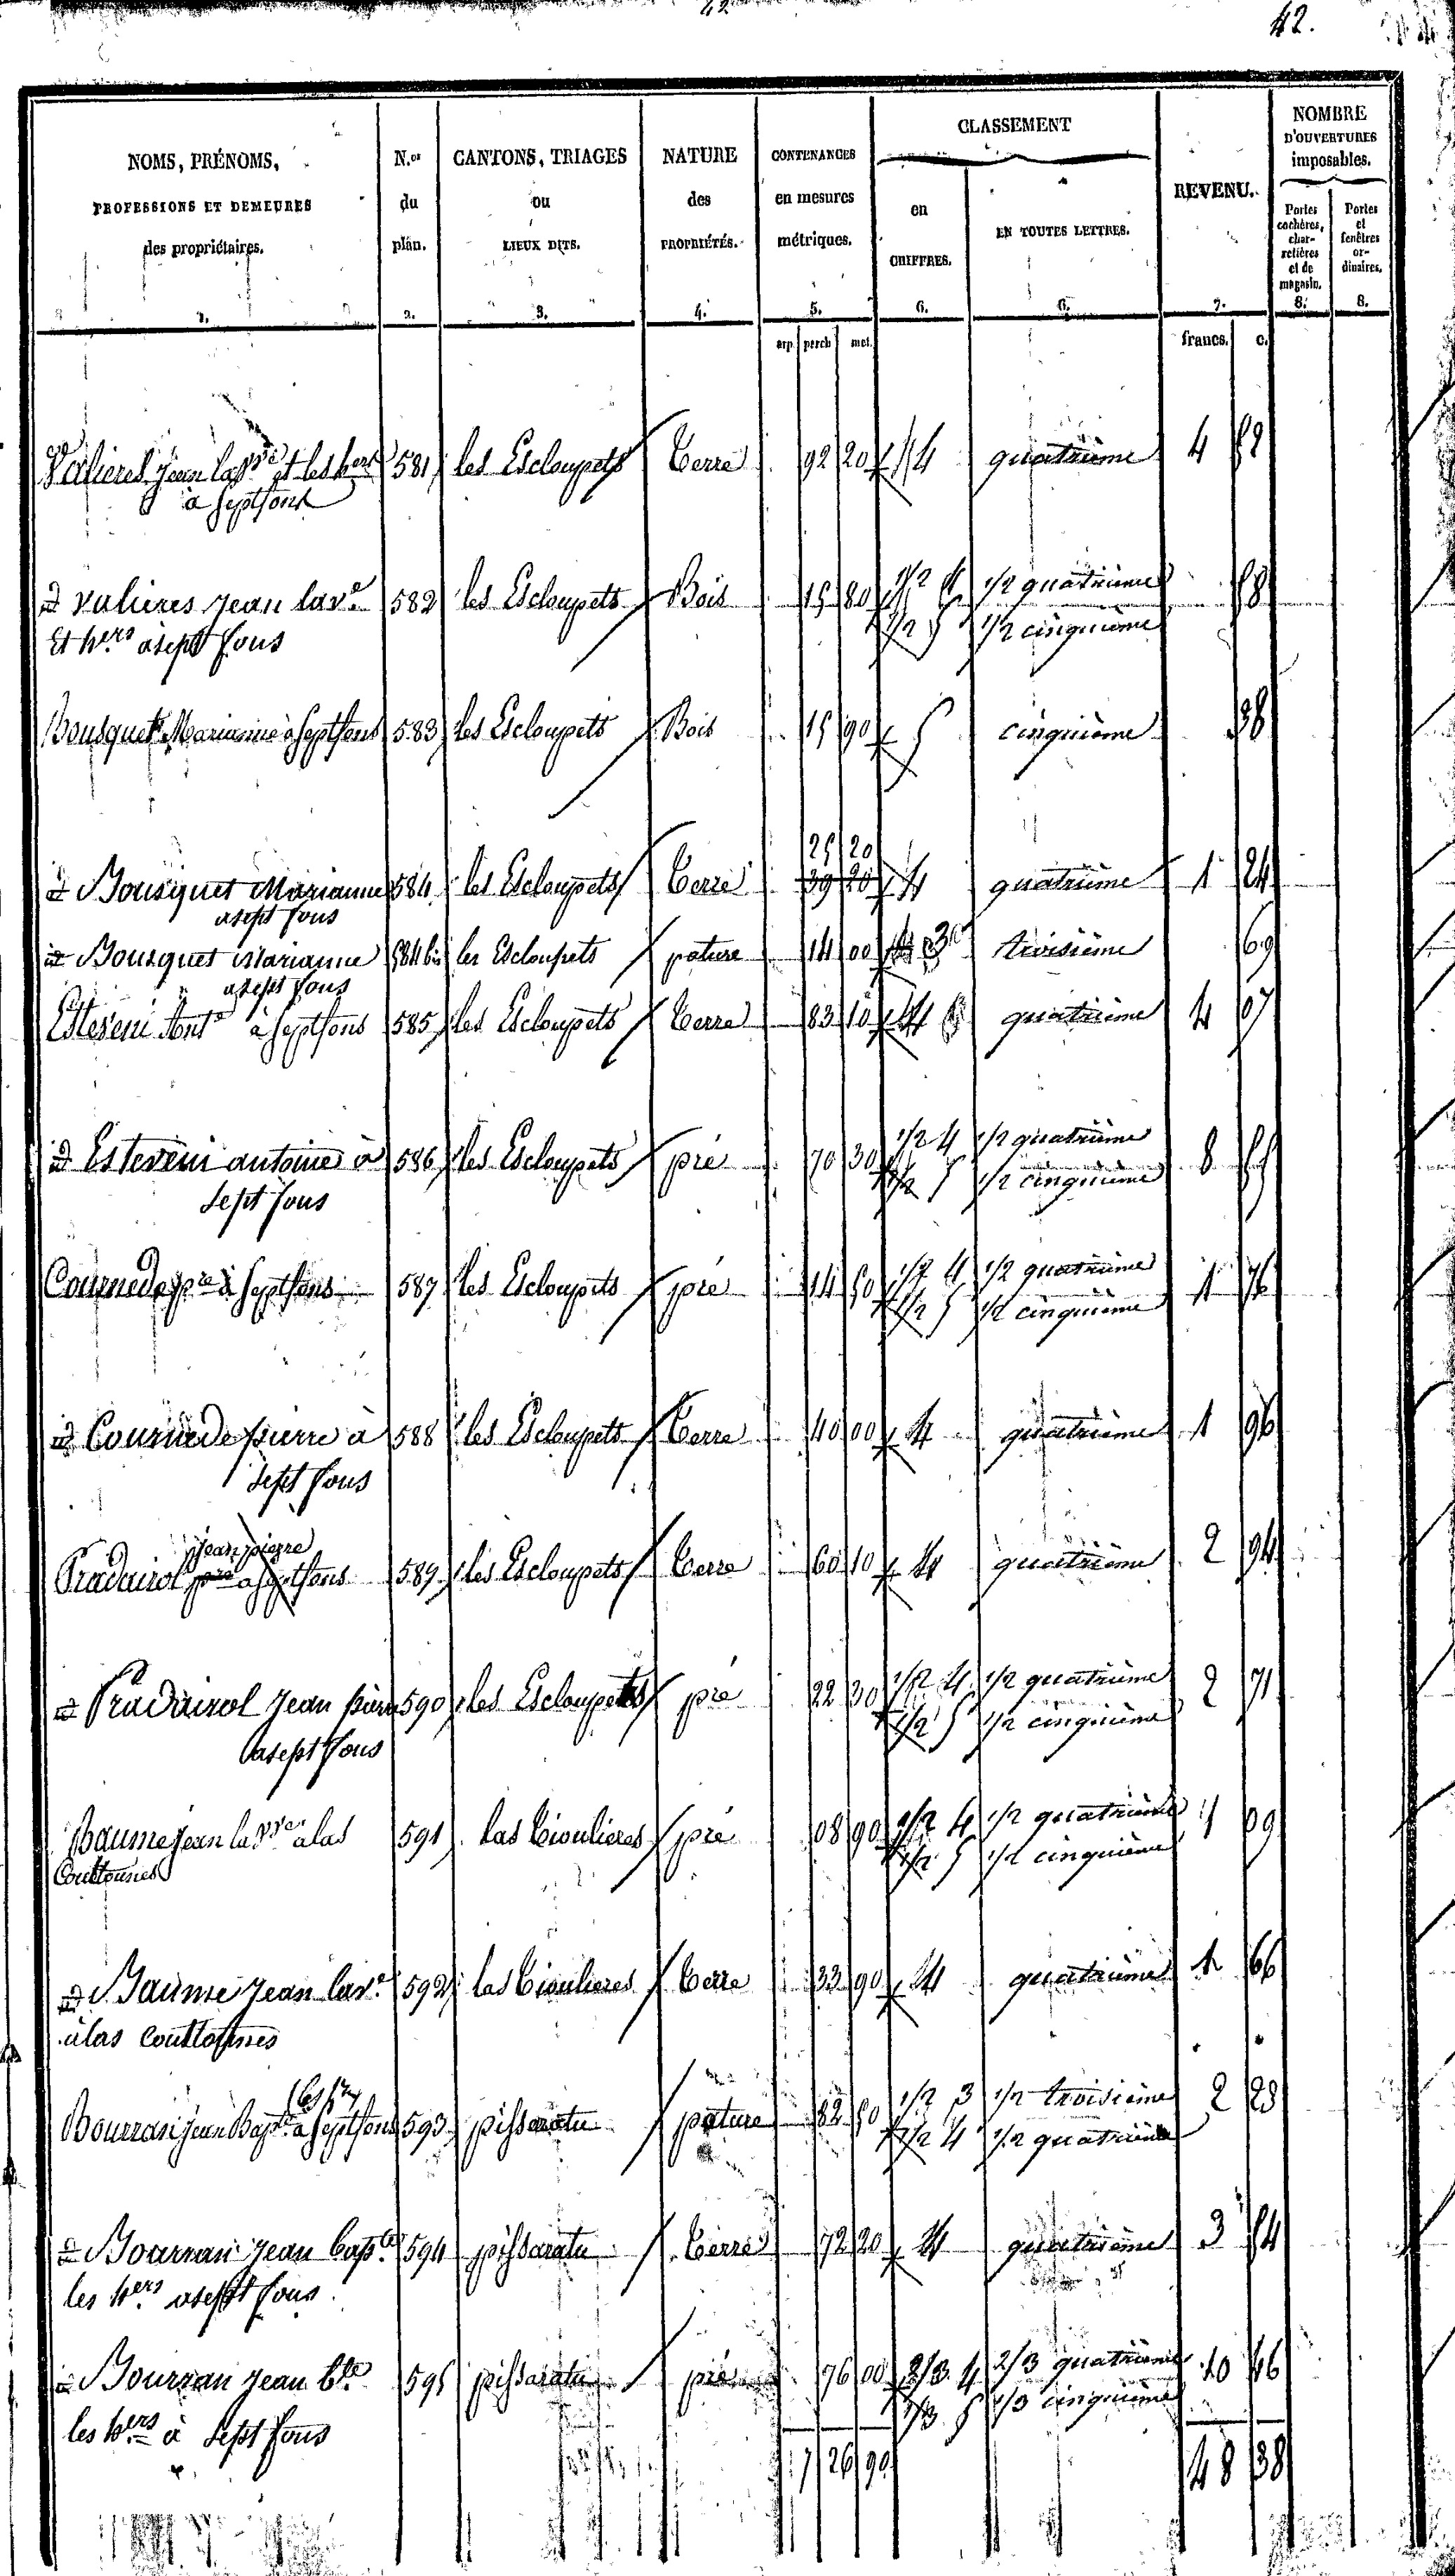 42
42.
NOMS, PRÉNOMS, PROFESSIONS ET DEMEURES des propriétaires. 1.
N.os du plan. 2.
CANTONS, TRIAGES ou LIEUX DITS. 3.
NATURE des PROPRIÉTÉS. 4.
CONTENANCES en mesures métriques. 5.
CLASSEMENT
en CHIFFRES. 6.
EN TOUTES LETTRES. 6.
REVENU. 7.
NOMBRE D'OUVERTURES imposables.
Portes cochères, charretières et de magasin. 8.
Portes et fenêtres ordinaires. 8.
arp. perch. met. francs. c.
Valieres Jean la vve et les hers 581 les Escloupets Terre 92 20 4 quatrième 4 52
à Septfons
id Valieres Jean la ve 582 les Escloupets Bois 15 80 1/2 4 1/2 quatrième 58
Et hers a sept fons 1/2 5 1/2 cinquième
Bousquet Marianne à Septfons 583 les Escloupets Bois 15 90 5 cinquième 38
25 20
id Bousquet Marianne 584 les Escloupets Terre 39 20 4 quatrième 1 24
a sept fons
id Bousquet Marianne 584 bis les Escloupets pature 14 00 3e troisième 69
a sept fons
Esteveni Antne à Septfons 585 les Escloupets Terre 83 10 4 quatrième 4 07
id Esteveni antoine à 586 les Escloupets pré 70 30 1/2 4 1/2 quatrième 8 55
Sept fons 1/2 5 1/2 cinquième
Cournede pre à Septfons 587 les Escloupets pré 14 50 1/2 4 1/2 quatrième 1 76
1/2 5 1/2 cinquième
id Cournede pierre à 588 les Escloupets Terre 40 00 4 quatrième 1 96
Sept fons
jean pierre
Pradairol pre a Septfons 589 les Escloupets Terre 60 10 4 quatrième 2 94
id Pradairol Jean pierre 590 les Escloupets pré 22 30 1/2 4 1/2 quatrième 2 71
a sept fons 1/2 5 1/2 cinquième
Baume jean la vve a las 591 las Tioulieres pré 08 90 1/2 4 1/2 quatrième 1 09
Couttounies 1/2 5 1/2 cinquième
id Baume Jean la ve 592 las Tioulieres Terre 33 90 4 quatrième 1 66
à las
les hrs
Jean Bapte à Septfons 593 pissaratu pature 82 50 1/2 3 1/2 troisième 2 23
1/2 4 1/2 quatrième
id Jean Bapte 594 pissaratu Terre 72 20 4 quatrième 3 54
les hers a sept fons
id Jean Bte 595 pissaratu pré 76 00 2/3 4 2/3 quatrième 10 46
les hers à Sept fons 1/3 5 1/3 cinquième
7 26 90 48 38